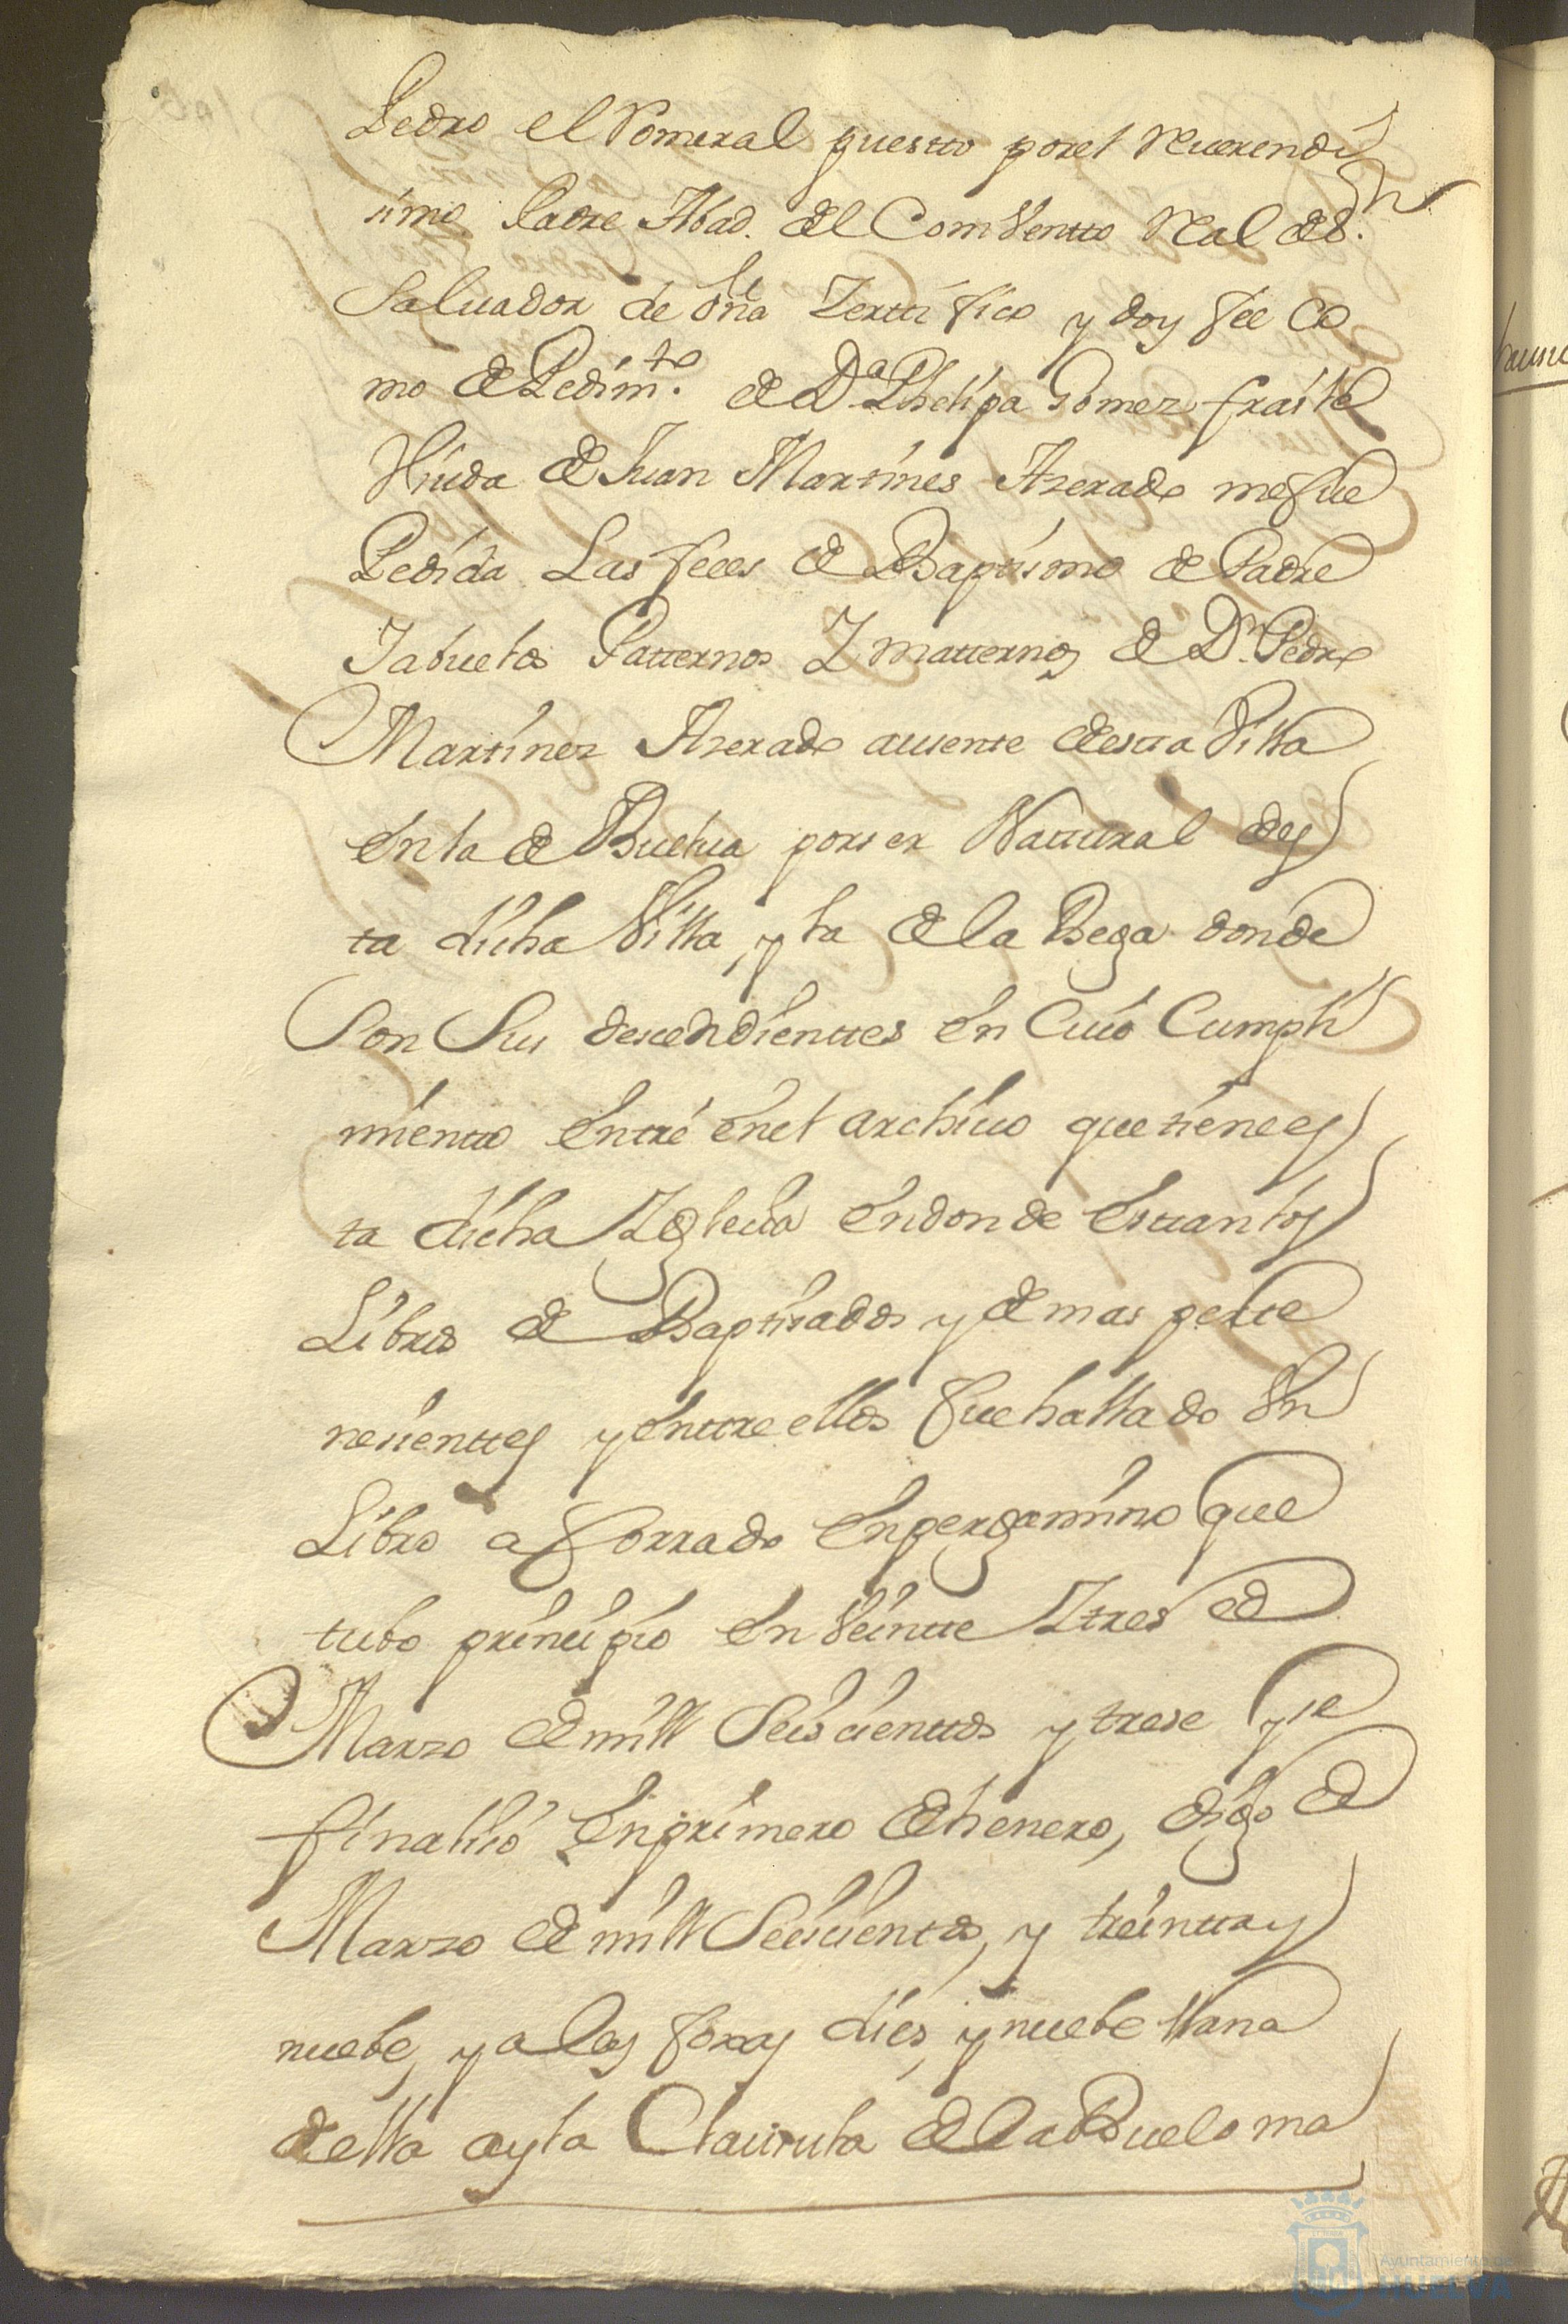 Pedro el Pomeral puestto porel Reuerendis
simo Padre Abad. del Comventto Real de Sn.
Saluador de Oña Zerttifico y doy fee Co
mo de Pedimto. de Da. Phelipa Gomez fraile
Viuda de Juan Martines Azerado mefue
Pedida Las fees de Baptismo de Padre
Iabuelos Patternos Y matternos de Dn. Pedro
Martinez Azerado ausente destta Villa
enla de Buelua porser Nattural des
ta dicha Villa, y la de la Bega donde
Son Sus descendienttes en Cuio Cumpli
mientto entré enel archiuo quetienees
ta dicha Yglesia endonde esttanlos
Libros de Baptisados y demas perte
nesienttes yenttreellos fuehallado Vn
Libro aforrado enpergamino que
tubo prinsipio en Veintte Ytres de
Marzo demill Seiscienttos y trese yse
finalisó enprimero dehenero, digo de
Marzo demill Seiscientos, y treinttay
nuebe, y alas foxas dies, ynuebe llana
della ayla Clausula delabuelo ma
Ayuntamiento de
HUELVA